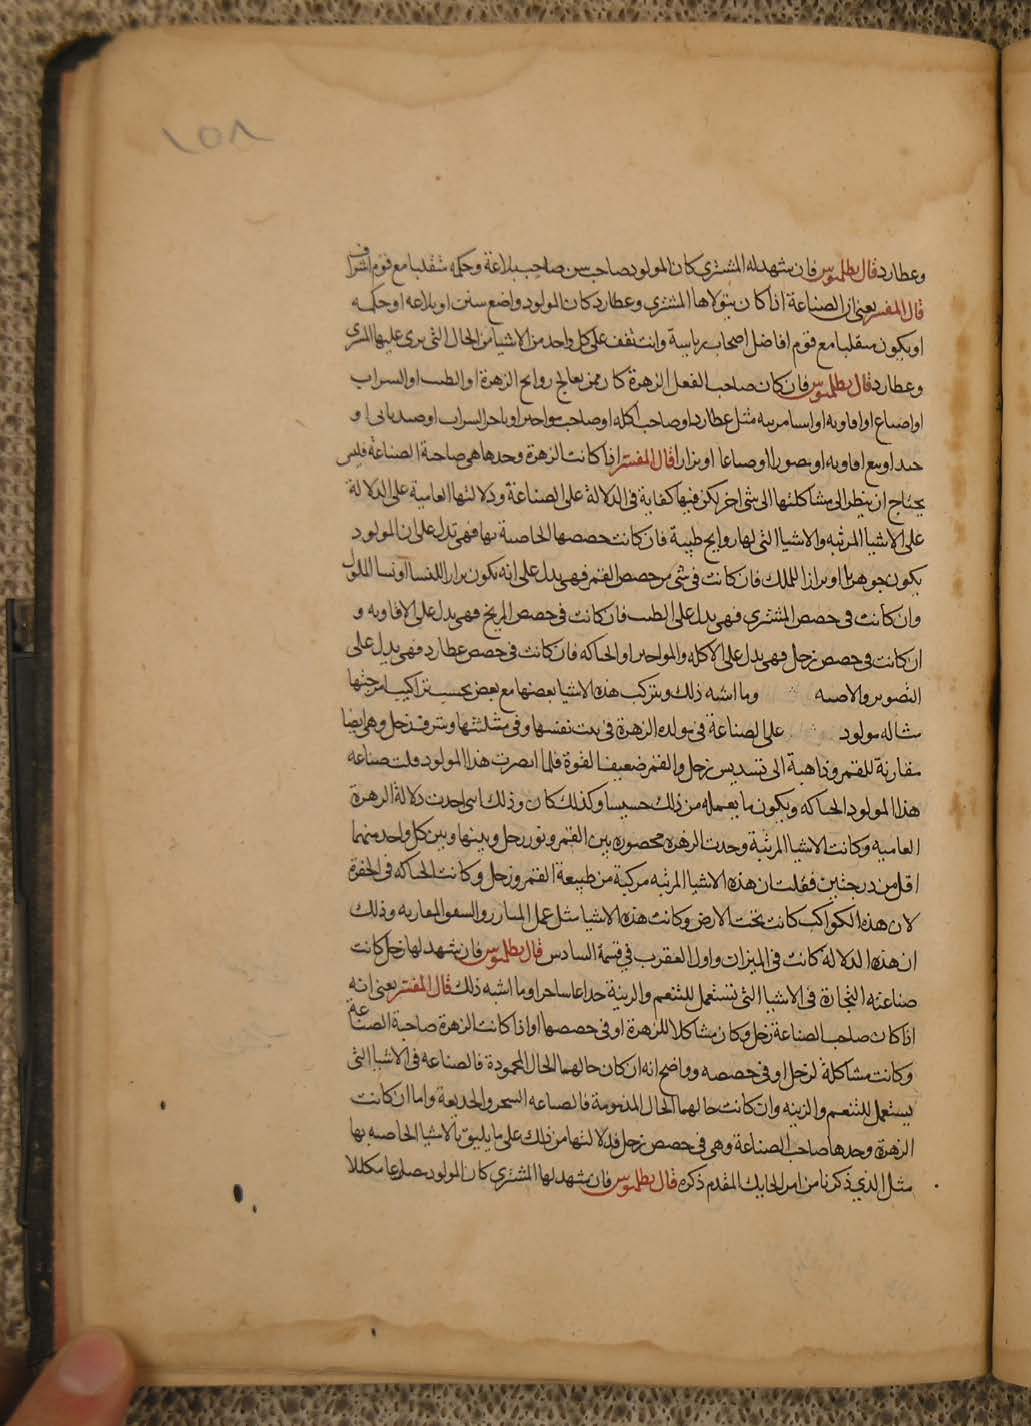 ١٥٨
وعطارد قال بطلميوس فان شهد له المشتري كان المولود صاحب سنن صاحب بلاغة وحكمه متقلبا مع قوم اشراف
قال المفسر يعني ان الصناعة اذا كان يتولاها المشتري وعطارد كان المولود واضع سنن او بلاغه او حكمه
او يكون متقلبا مع قوم افاضل اصحاب رياسة وانت تقف على كل واحد من الاشيا من الحال التي يرى عليها المشتري
وعطارد قال بطلميوس فان كان صاحب الفعل الزهرة كان ممن يعالج روايح الزهرة او الطيب او الشراب
او اصباغ او افاويه او اشيا مزينه مثل عطار او صاحب اكله او صاحب مواخير او تاجر الشراب او صيدناني او
او يبيع افاويه او مصورا او صباغا او بزارا قال المفسر اذا كانت الزهرة وحدها هي صاحبة الصناعة فليس
يحتاج ان ينظر الى مشاكلتها الى شي اخر لكن فيها كفاية في الدلالة على الصناعة ودلالتها العامية على الدلالة
على الاشيا المزينه والاشيا التي لها روايح طيبة فان كانت حصصها الخاصية بها فهي تدل على ان المولود
يكون جوهريا او بزازا للملك فان كانت في شي من حصص القمر فهي يدل على انه يكون بزاز النسا او نسا الملوك
وان كانت في حصص المشتري فهي يدل على الطيب فان كانت في حصص المريخ فهي يدل على الافاويه و
ان كانت في حصص زحل فهي يدل على الاكله والمواخير او الحياكه فان كانت في حصص عطارد فهي يدل على
التصوير والاصبغه وما اشبه ذلك ويتركب هذه الاشيا بعضها مع بعض بحسب تراكيب امزجتها
مثاله مولود على الصناعة في مولده الزهرة في بيت نفسها وفي مثلثتها وشرف زحل وهي ايضا
مقارنة للقمر وذاهبة الى تسديس زحل والقمر ضعيف القوة فلما ابصرت هذا المولود قلت صناعه
هذا المولود الحياكه ويكون ما يعمله من ذلك خسيسا وكذلك كان وذلك اني اخذت دلالة الزهرة
العاميه وكانت الاشيا المزينة وجدت الزهره محصوره بين القمر ونور زحل وبينها وبين كل واحد منهما
اقل من درجتين فقلت ان هذه الاشيا المزينه مركبه من طبيعة القمر وزحل وكانت الحياكه في الحفرة
لان هذه الكواكب كانت تحت الارض وكانت هذه الاشيا مثل عمل وذلك
ان هذه الدلالة كانت في الميزان واول العقرب في قسمة السادس قال بطلميوس فان شهد لها زحل كانت
صناعته التجارة في الاشيا التي تستعمل للتنعم والزينة خداعا ساحرا وما اشبه ذلك قال المفسر يعني انه
اذا كان صاحب الصناعة زحل وكان مشاكلا للزهرة او في حصصها او اذا كانت الزهرة صاحبة الصناعة
وكانت مشاكلة لزحل او في حصصه وواضح انه ان كان حالهما الحال المحمودة فالصناعه في الاشيا التي
يستعمل للتنعم والزينه وان كانت حالهما الحال المذمومة فالصناعه السحر والخديعة واما ان كانت
الزهرة وحدها صاحب الصناعة وهي في حصص زحل فدلالتها من ذلك على ما يليق بالاشيا الخاصه بها
مثل الذي ذكرنا من امر الحايك المقدم ذكره قال بطلميوس فان شهد لها المشتري كان المولود مكللا